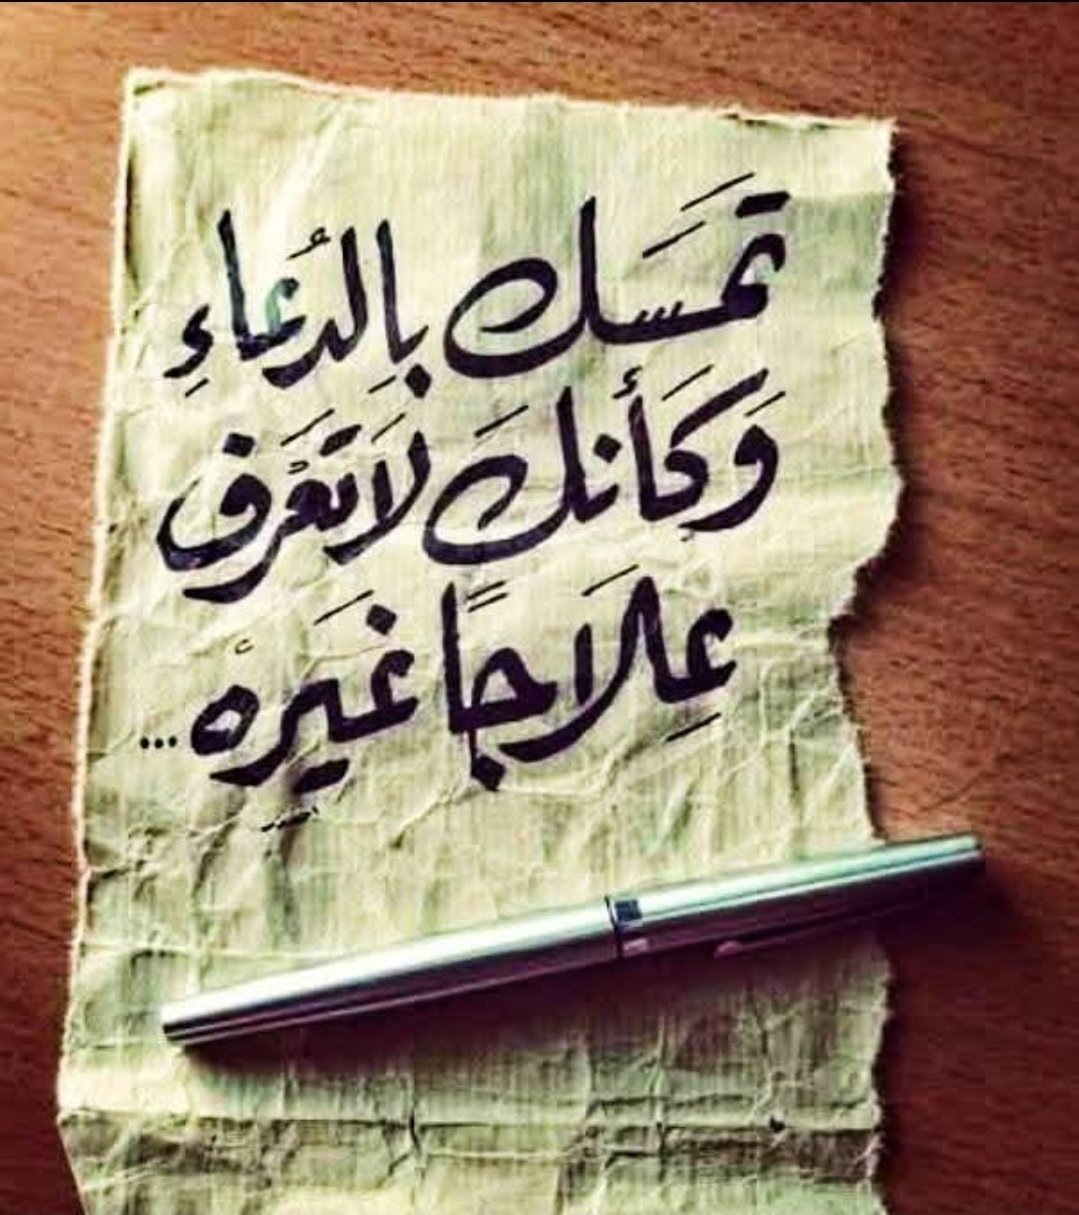 تمَسَك بِالدُعاءِ
وَكَأنكَ لَا تَعْرَف
عِلَاجًا غَيَرهْ...